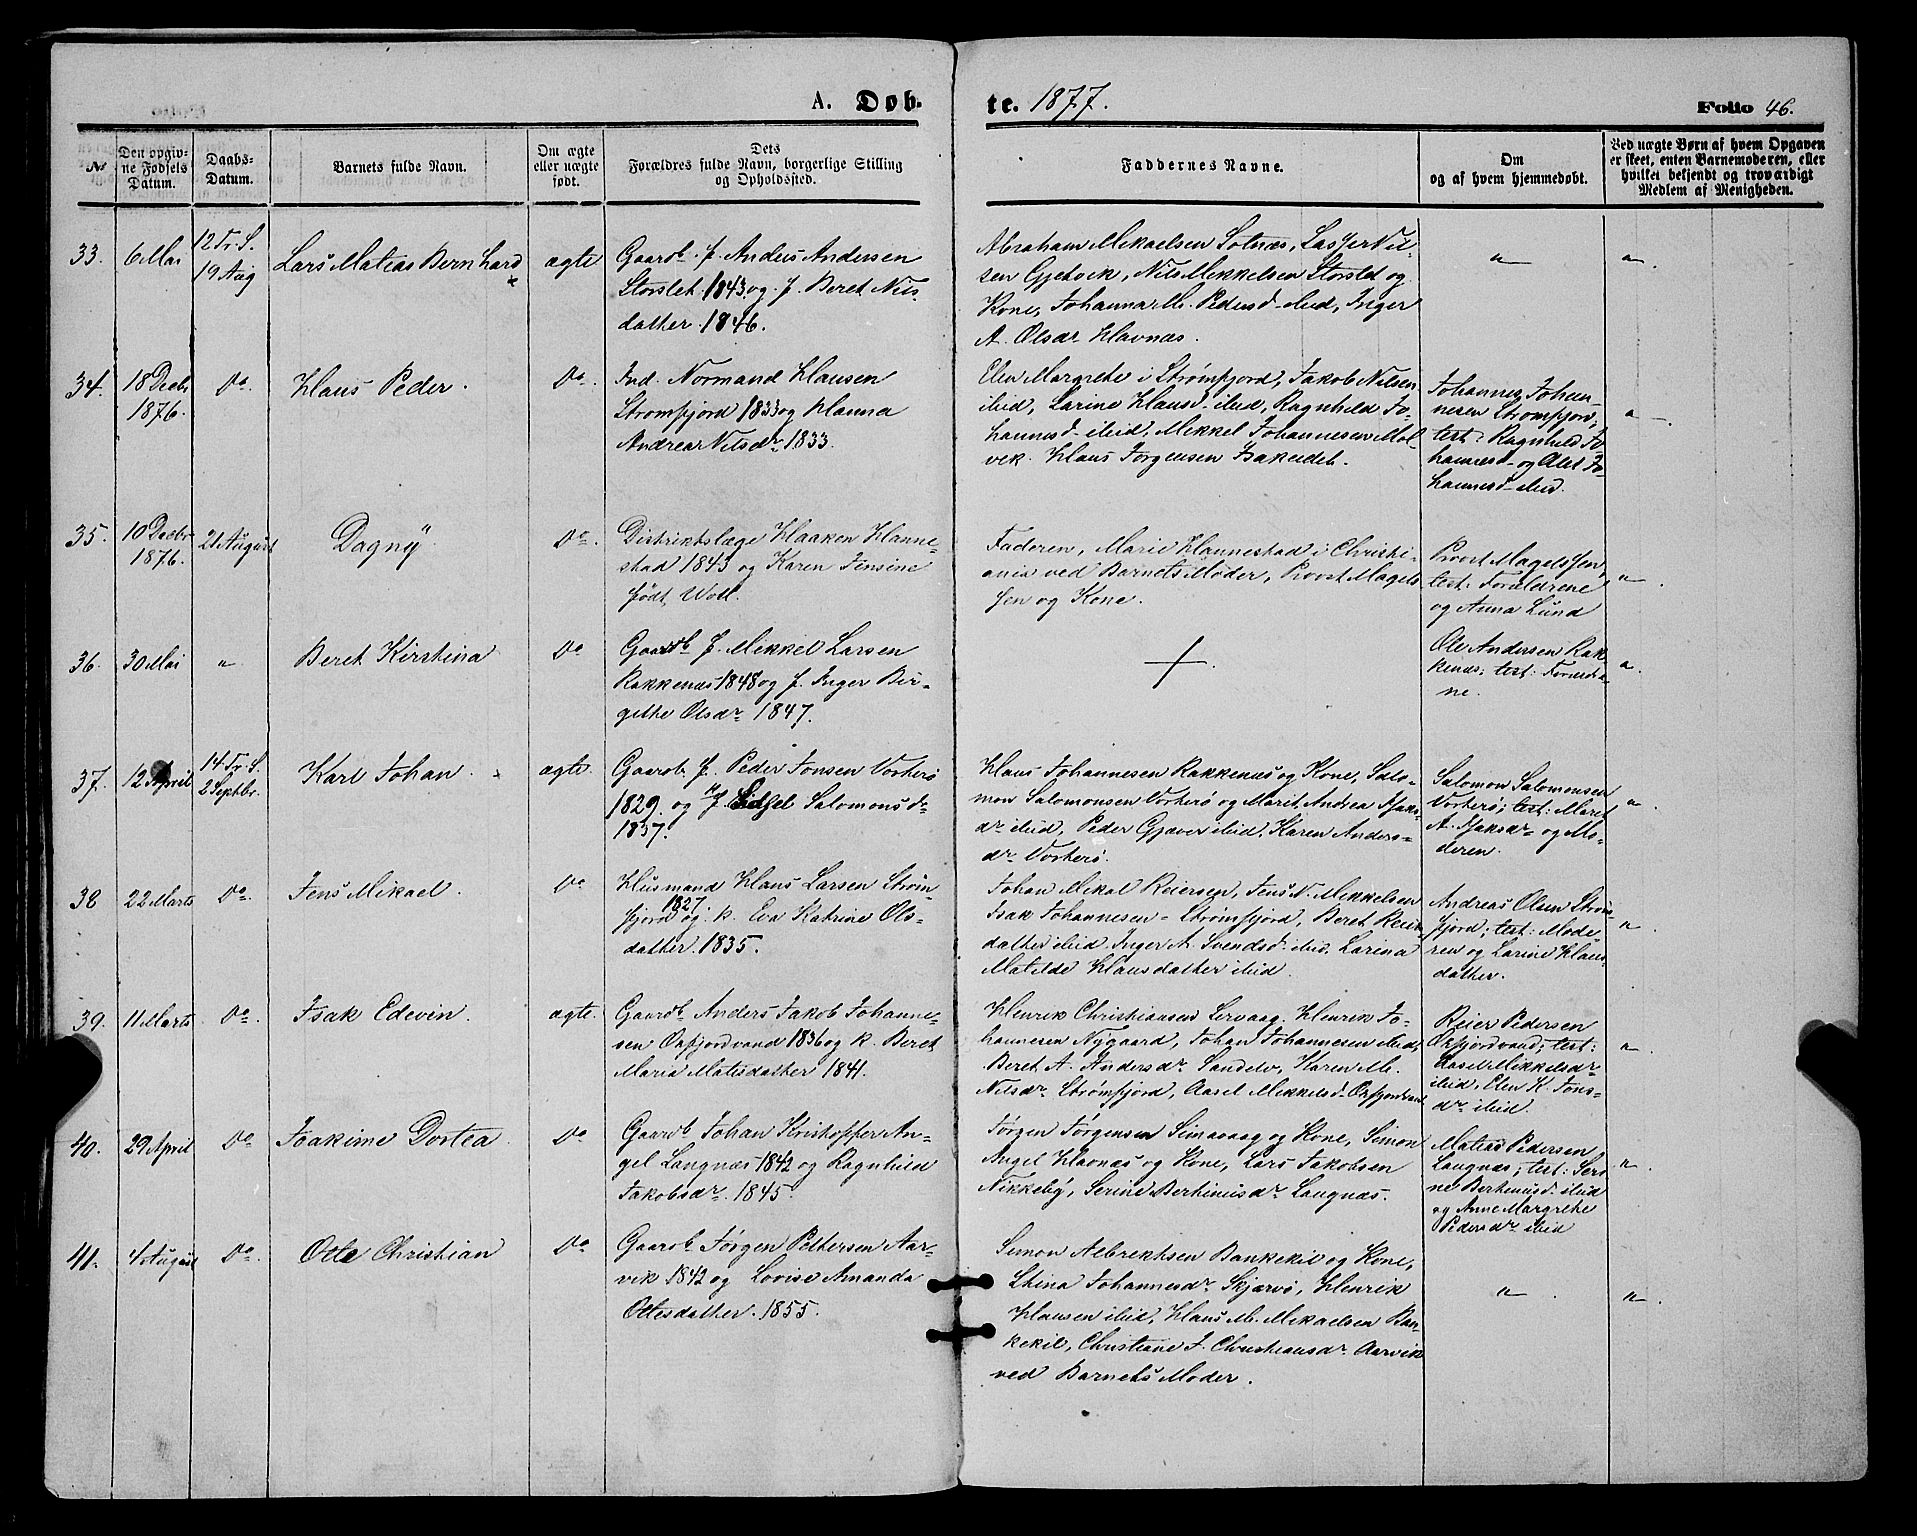 A. Døb-
te. 1877.
Folio 46.
№
Den opgiv-
ne Fødsels
Datum.
Daabs-
Datum.
Barnets fulde Navn.
Om ægte
eller uægte
født.
Dets
Forældres fulde Navn, borgerlige Stilling
og Opholdssted.
Faddernes Navne.
Om
og af hvem hjemmedøbt.
Ved uægte Børn af hvem Opgaven
er skeet, enten Barnemoderen, eller
hvilket bekjendt og troværdigt
Medlem af Menigheden.
33.
6 Mai
12 Tr. S.
19 Aug
Lars Matias Bernhard
ægte
Gaardb. f. Anders Andersen
Storslet 1843 og f. Beret Nils-
datter. 1846.
Abraham Mikaelsen Solnæs, Lasser Nil-
sen Gjetvik, Nils Mikkelsen Storslet og
Kone, Johanna M. Pedersd. ibid, Inger
A. Olsdr Havnæs.
"
"
34.
18 Decbr
1876.
Do.
Hans Peder.
Do.
Ind. Normand Hansen
Strømfjord 1833 og Hanna
Andrea Nilsdr 1833.
Elen Margrethe i Strømfjord, Jakob Nilsen
ibid, Larine Hansd. ibid, Ragnhild Jo-
hannesd. ibid, Mikkel Johannesen Mol-
vik. Hans Jørgensen Isakeidet.
Johannes Johan-
nesen Strømfjord,
test: Ragnhild Jo-
hannesd. og Jo-
hannesd. ibid.
"
35.
10 Decbr
1876.
21 August
Dagny
Do.
Distriktslæge Haaken Hanne-
stad 1843 og Karen Jensine
født Woll.
Faderen, Marie Hannestad i Christi-
ania ved Barnets Moder, Provst Magels-
sen og Kone.
Provst Magelssen,
test: Forældrene
og Anna Lund
"
36.
30 Mai
"
Beret Kirstina
Do
Gaardb f. Mikkel Larsen
Rakkenæs 1848 og f. Inger Bir-
githe Olsdr 1847.
+
Ole Andersen Rak-
kenæs; test: Foræld-
ne.
"
37.
12 April
14 Tr. S.
2 Septbr.
Karl Johan.
ægte.
Gaardb. f. Peder Jonsen Vorterø
1829. og f. Sidsel Salomonsdr
1837.
Hans Johannesen Rakkenæs og Kone, Salo-
mon Salomonsen Vorterø og Marit Andrea Isaks-
dr ibid, Peder Gjæver ibid, Karen Anders-
dr Vorterø.
Salomon Salomonsen
Vorterø; test: Maret
A. Isaksdr og Mo-
deren.
"
38
22 Marts
Do.
Jens Mikael.
Do
Husmand Hans Larsen Strøm-
fjord 1827 og k. Eva Katrine Ols-
datter. 1835.
Johan Mikal Reiersen, Jens N. Mikkelsen
Isak Johannesen - Strømfjord, Beret Reier-
datter ibid Inger A. Svendsd. ibid, Larina
Matilde Hansdatter ibid.
Andreas Olsen Strøm-
fjord; test: Mode-
ren og Larine Hans-
datter.
"
39.
11 Marts
Do.
Isak Edevin.
ægte.
Gaardb Anders Jakob Johanne-
sen Oxfjordvand 1836 og k. Beret
Maria Matisdatter 1841.
Henrik Christiansen Lervaag. Henrik Jo-
hannesen Nygaard, Johan Johannesen ibid,
Beret A. Andersdr Sandelv, Karen M.
Nilsdr Strømfjord, Aasel Mikkelsd. Oxfjordvand
Reier Pedersen
Oxfjordvand; test:
Aasel Mikkelsdr
ibid, Elen K. Jons-
dr ibid.
"
40.
29 April
Do
Joakime Dortea
Do
Gaardb Johan Kristoffer An-
gel Langnæs 1842 og Ragnhild
Jakobsdr. 1845.
Jørgen Jørgensen Simavaag og Kone, Simon
Angel Havnæs og Kone, Lars Jakobsen
Nikkeby, Serine Bertinusdr Langnæs.
Matias Pedersen
Langnæs; test: Seri-
ne Bertinusd. ibid
og Anne Margrethe
Pedersdr ibid
"
41.
4 August
Do.
Otto Christian
Do
Gaardb Jørgen Pettersen Aar-
vik 1842 og Lovise Amanda
Ottesdatter. 1855.
Simon Albrektsen Bankekil og Kone,
Stina Johannesdr Skjærvø, Henrik
Hansen ibid, Hans M. Mikaelsen Ban-
kekil, Christiane J. Christiansdr Aarvik
ved Barnets Moder.
"
"